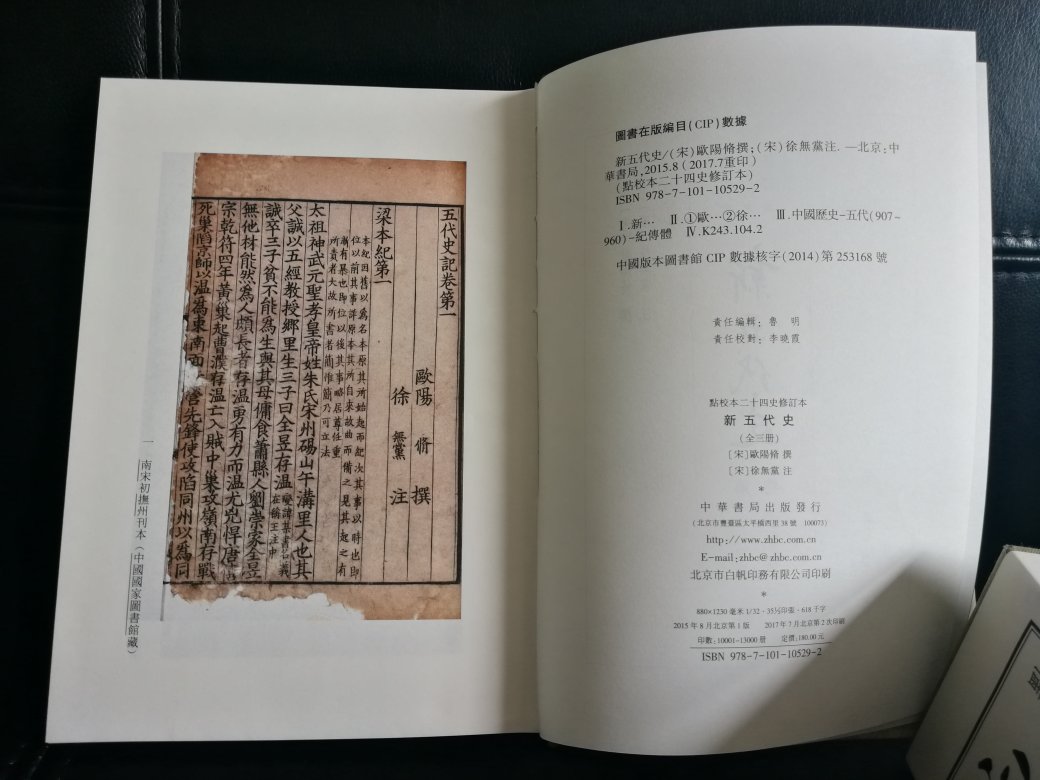 五代史記卷第一
歐陽脩撰
徐無黨注
梁本紀第一
本紀因舊以爲名本原其所始起而紀次其事以時也即
位以前其事詳原本其所自來故曲而備之見其起之有
漸有暴也即位以後其事略居尊任重
所責者大故所書者簡惟簡乃可立法
太祖神武元聖孝皇帝姓朱氏宋州碭山午溝里人也其
父誠以五經教授鄉里生三子曰全昱存溫
誠卒三子貧不能爲生與其母傭食蕭縣人劉崇家全昱
無他材能然爲人頗長者存溫勇有力而溫尤兇悍唐僖
宗乾符四年黃巢起曹濮存溫亡入賊中巢攻嶺南存戰
死巢陷京師以溫爲東南面
營先鋒使攻陷同州以爲同
一 南宋初撫州刊本(中國國家圖書館藏)
圖書在版編目(CIP)數據
新五代史/(宋)歐陽脩撰;(宋)徐無黨注. —北京:中
華書局,2015.8(2017.7重印)
(點校本二十四史修訂本)
ISBN 978-7-101-10529-2
Ⅰ.新… Ⅱ.①歐…②徐… Ⅲ.中國歷史-五代(907~
960)-紀傳體 Ⅳ.K243.104.2
中國版本圖書館CIP數據核字(2014)第253168號
責任編輯:魯 明
責任校對:李曉霞
點校本二十四史修訂本
新五代史
(全三册)
〔宋〕歐陽脩 撰
〔宋〕徐無黨 注
*
中華書局出版發行
(北京市豐臺區太平橋西里38號 100073)
http://www.zhbc.com.cn
E-mail:zhbc@zhbc.com.cn
北京市白帆印務有限公司印刷
*
880×1230毫米 1/32·35½印張·618千字
2015年8月北京第1版 2017年7月北京第2次印刷
印數:10001-13000册 定價:180.00元
ISBN 978-7-101-10529-2